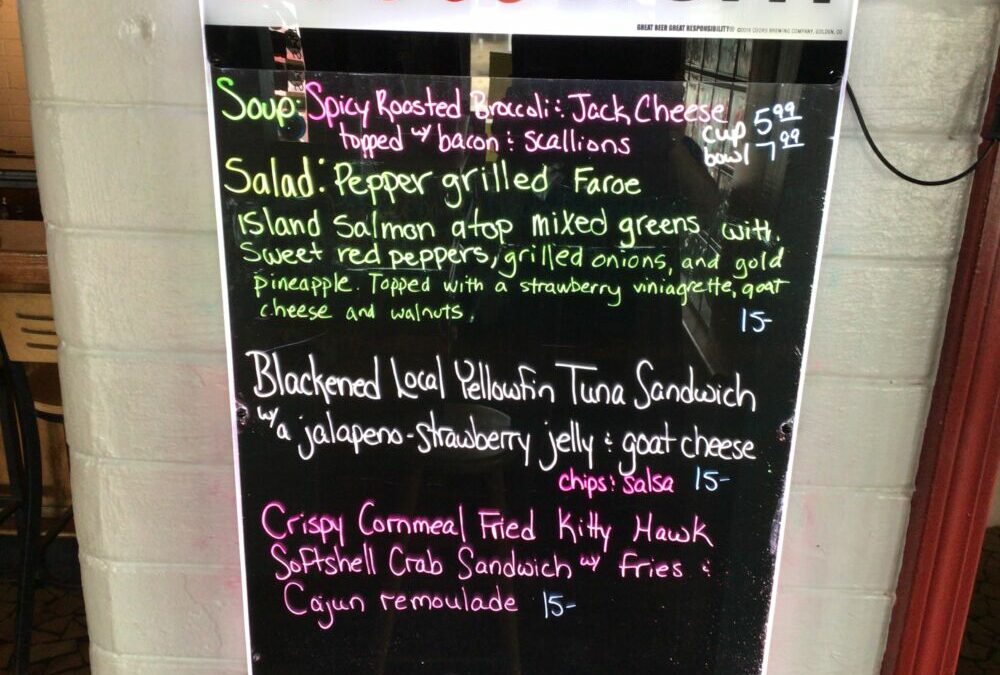 GREAT BEER GREAT RESPONSIBILITY® ©2016 COORS BREWING COMPANY, GOLDEN, CO
Soup: Spicy Roasted Broccoli & Jack Cheese
topped w/ bacon & scallions
cup 5.99
bowl 7.99
Salad: Pepper grilled Faroe
Island Salmon atop mixed greens with
Sweet red peppers, grilled onions, and gold
pineapple. Topped with a strawberry viniagrette, goat
cheese and walnuts.
15-
Blackened Local Yellowfin Tuna Sandwich
w/ a jalapeno-strawberry jelly & goat cheese
chips & salsa 15-
Crispy Cornmeal Fried Kitty Hawk
Softshell Crab Sandwich w/ Fries &
Cajun remoulade 15-